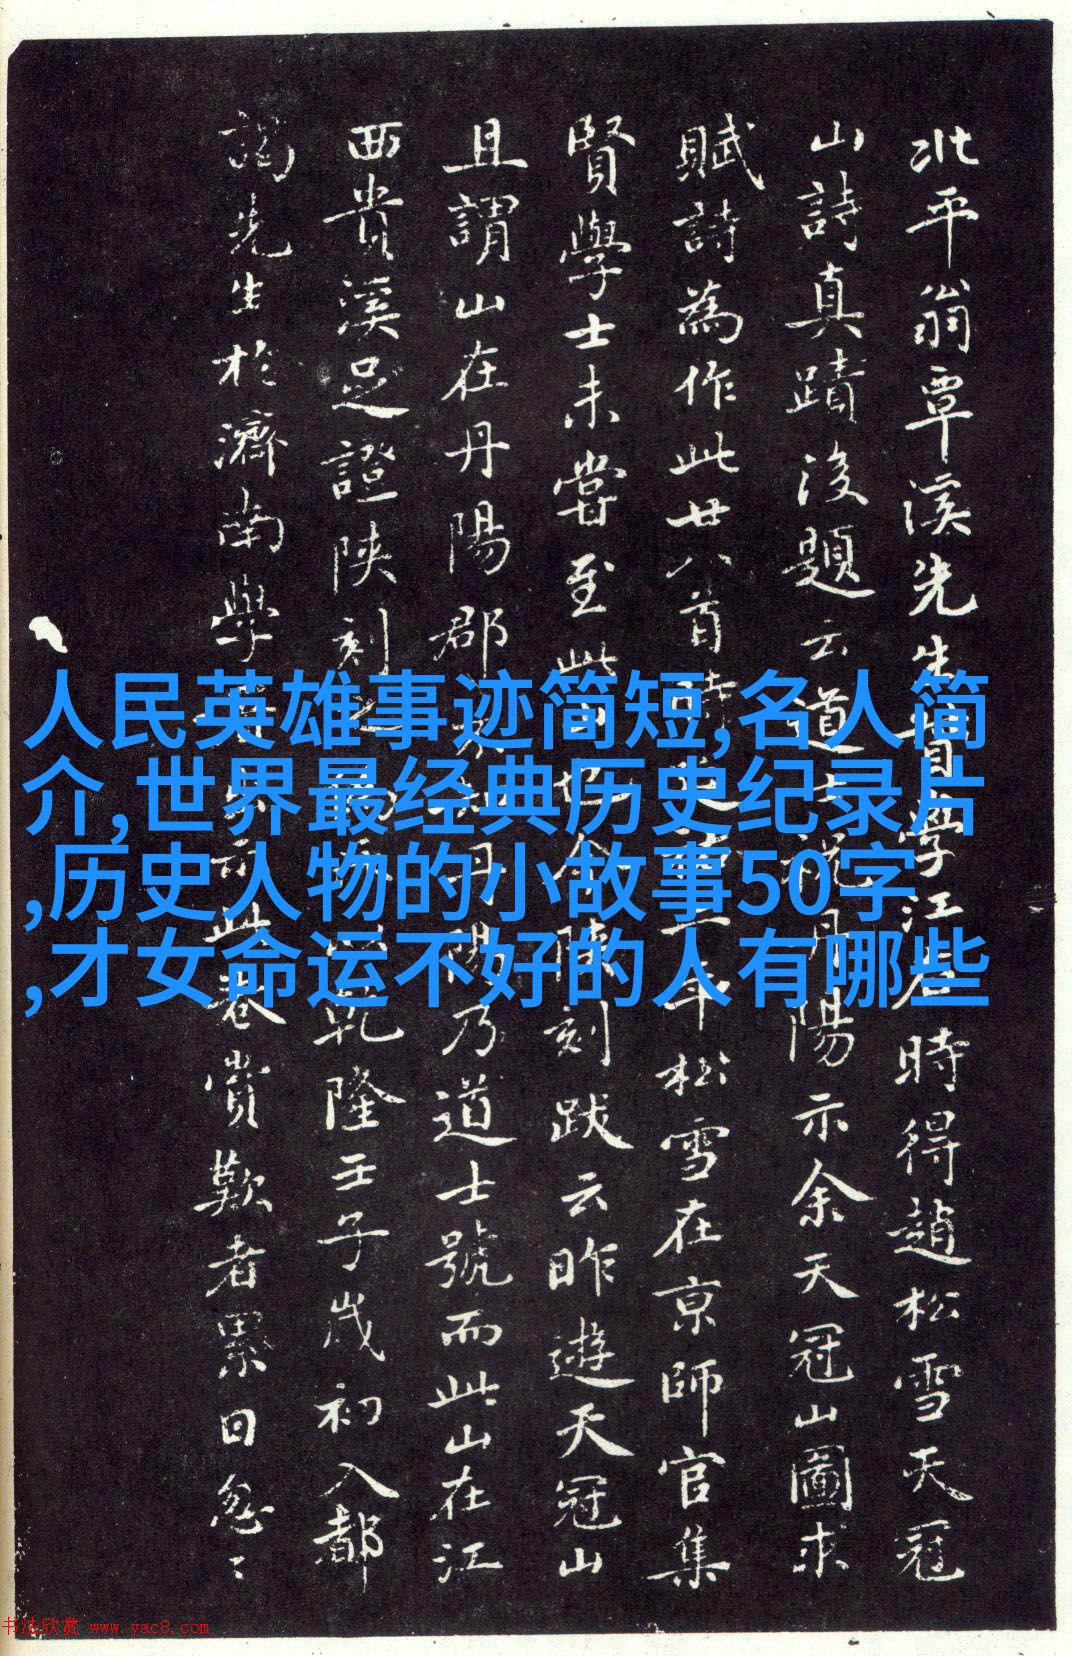 北平翁覃溪先生督學江右時得趙松雪天冠
山詩真蹟後題云道士祝丹陽示余天冠山圖求
賦詩為作此廿八首詩二年松雪在京師官集
賢學士未嘗至此山也余陝刻跋云昨遊天冠山
且謂山在丹陽郡丹陽乃道士號而此山在江
西貴溪足證陝刻之乾隆壬子歲初入都
謁先生於濟南學示此卷賞歎者累日忽〻
人民英雄事迹简短,名人简
介,世界最经典历史纪录片
,历史人物的小故事50字
,才女命运不好的人有哪些
书法欣赏 www.yac8.com